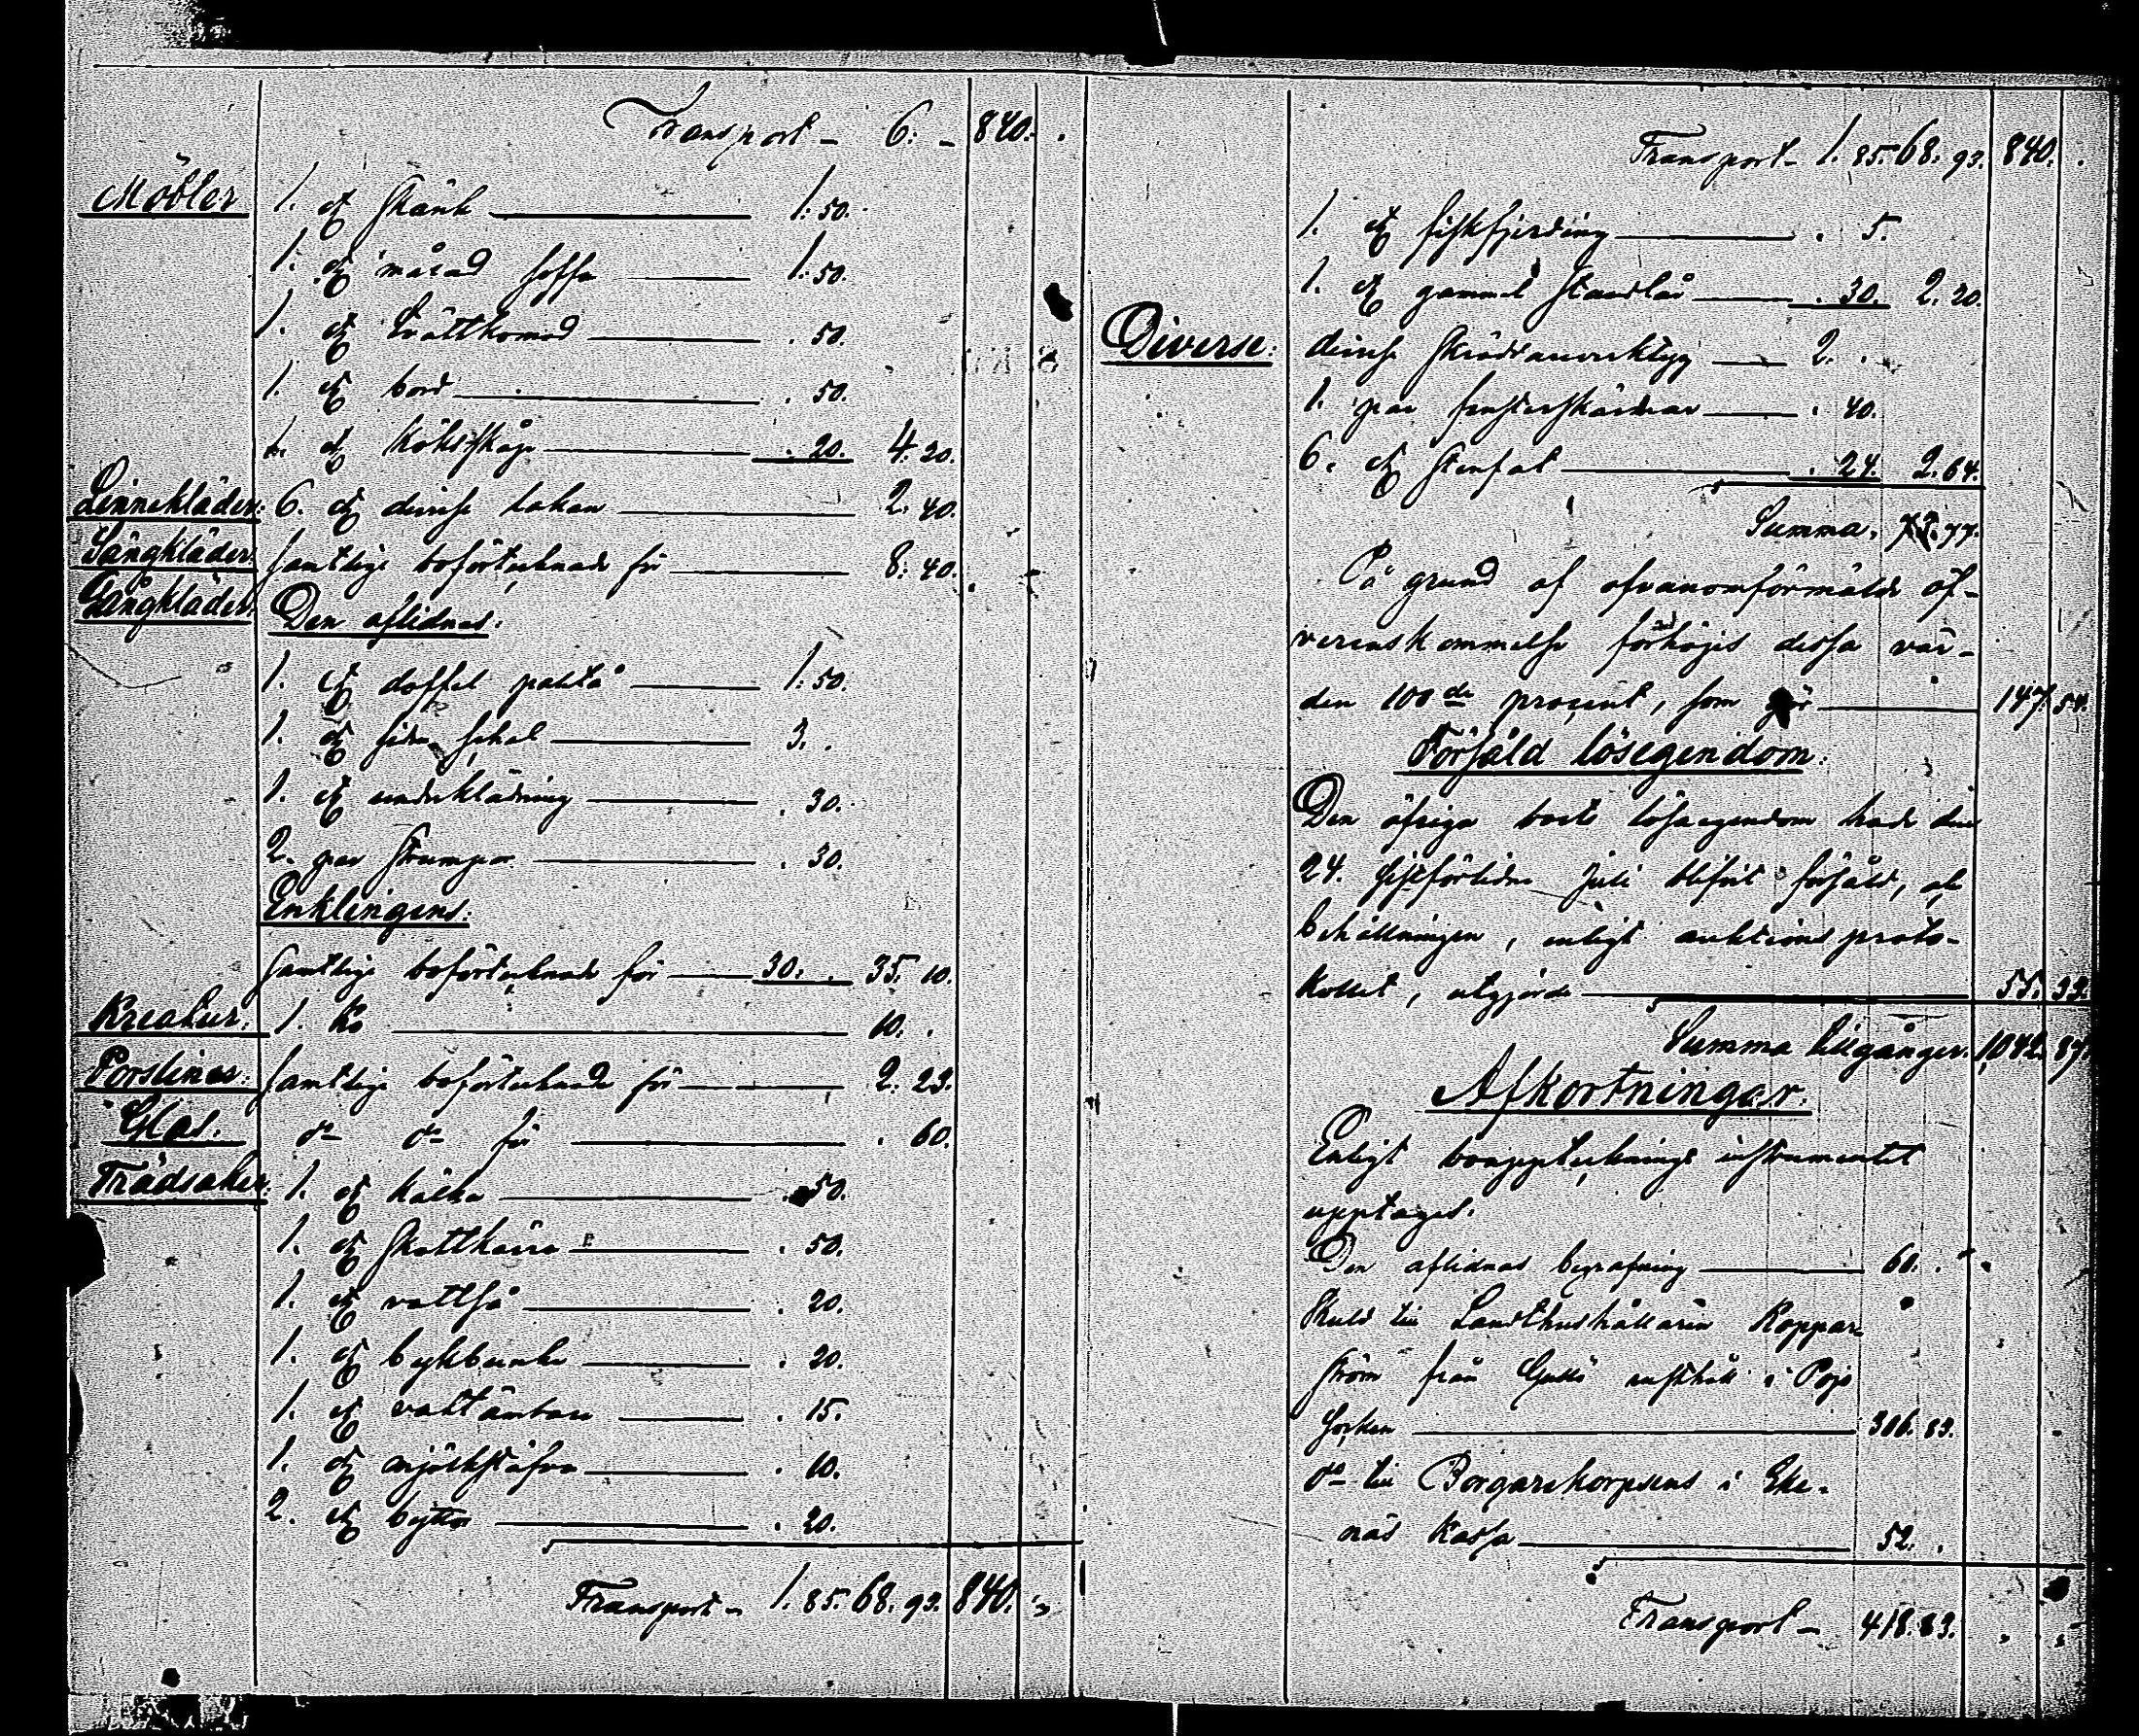 Transport - 6. - 840. .
Möbler 1. st skänk 1. 50.
1. st målad soffa 1. 50.
1. st tvättkomod . 50.
1. st bord . 50.
1. st köksskåp . 20. 4. 20.
Linnekläder: 6. st diverse lakan 2. 40.
Sängkläder: samtlige boförtecknade för 8. 40.
Gångkläder: Den aflidnas:
1. st doffel paltå 1. 50.
1. st siden schal 3. .
1. st underklädning . 30.
2. par strumpor . 30.
Enklingens:
samtlige boförtecknade för 30. . 35. 10.
Kreatur. 1. ko 10. .
Porsliner: samtlige boförtecknade för 2. 23.
Glas. do do för . 60.
Trädsaker. 1. st kälke . 50.
1. st skottkärra . 50.
1. st vattså . 20.
1. st bykbunke . 20.
1. st vattämbare . 15.
1. st mjölkstäfva . 10.
2. st byttor . 20.
Transport - 1. 85. 68. 93. 840. "
Transport - 1. 85. 68. 93. 840. .
1. st fiskfjerding . 5.
1. st gammal . 30. 2. 20.
Diverse: diverse skräddareverktyg 2. .
1. par . 40.
6. st stenfat . 24. 2. 64.
Summa. 73. 77.
På grund af ofvanomförmälde öf-
verenskommelse förhöjes dessa vär-
den 100de procent, som gör 147. 54.
Försåld lösegendom:
Den öfriga boets lösaegendom hade den
24. sistförlidne Juli blifvit försåld, och
behållningen, enligt auktions proto-
kollet, utgjorde 55. 33.
Summa tillgångar. 1,042. 87.
Afkortningar.
Enligt bouppteckningsinstrumentet
upptages.
Den aflidnas begrafning 60. .
Skuld till Landthushållaren Koppar-
ström från rusthåll i Pojo
Socken 306. 83.
do till Borgarekorpsens i Eke-
näs Kassa 52. .
Transport - 418. 83. . .